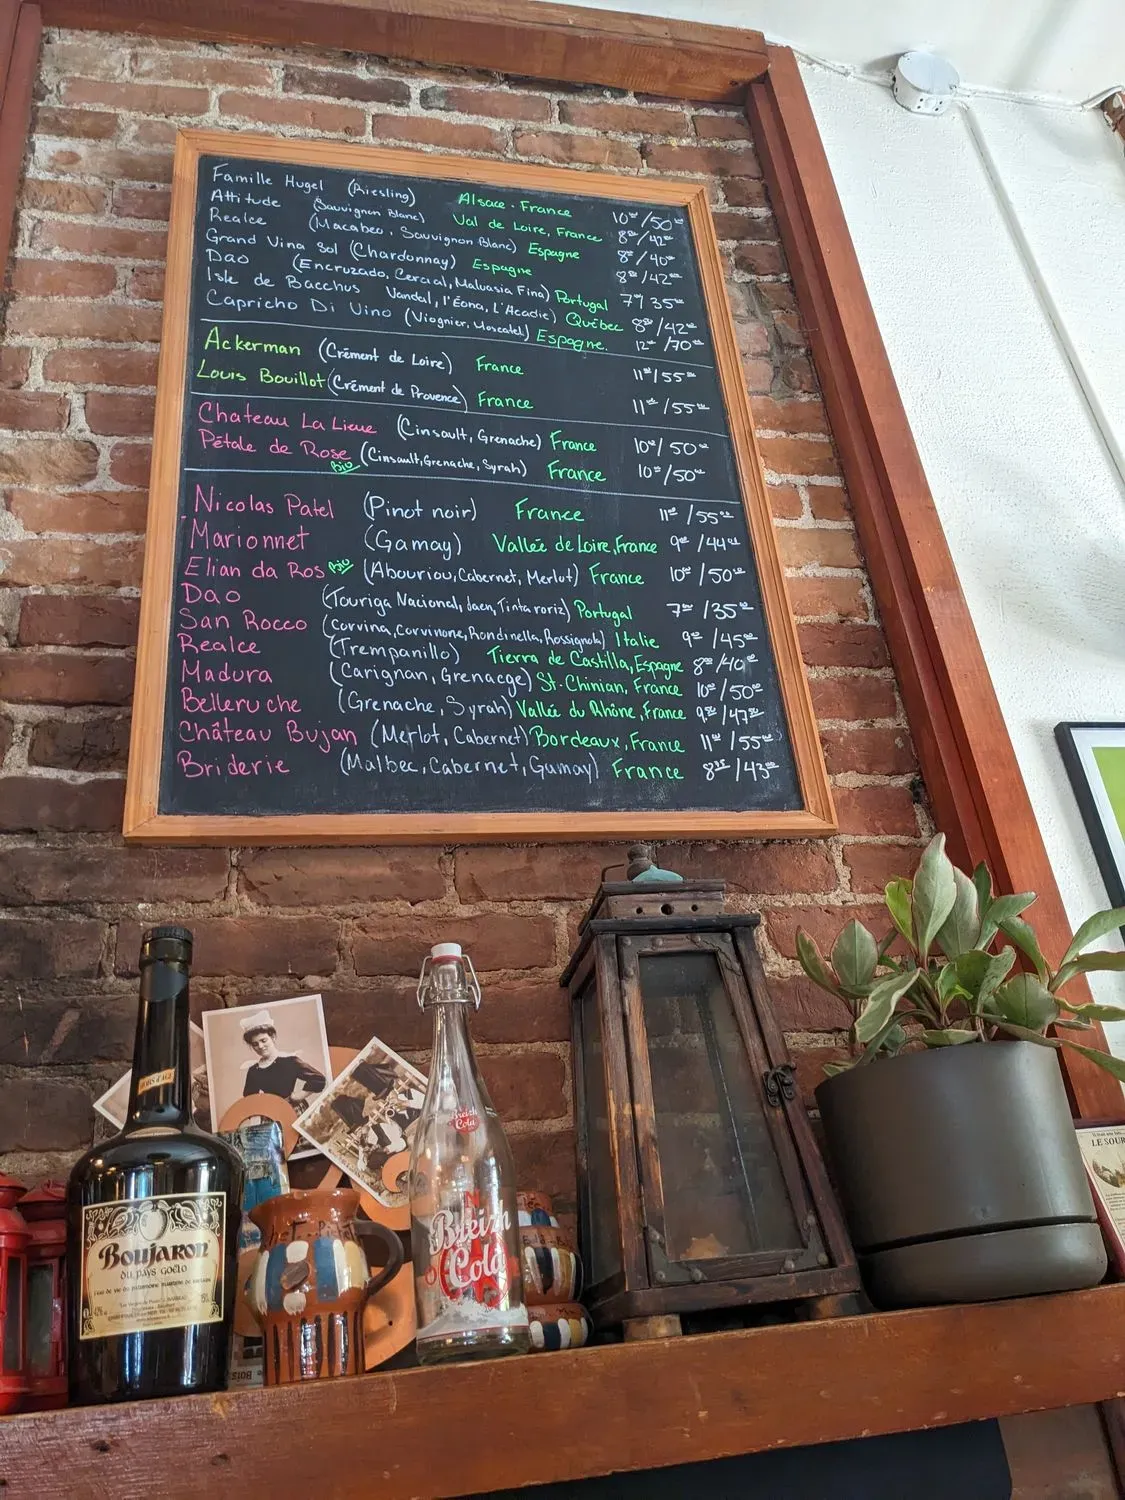 Famille Hugel (Riesling) Alsace - France 10⁰⁰/50⁰⁰
Attitude (Sauvignon Blanc) Val de Loire, France 8⁵⁰/42⁰⁰
Realce (Macabeo, Sauvignon Blanc) Espagne 8⁰⁰/40⁰⁰
Grand Vina Sol (Chardonnay) Espagne 8⁵⁰/42⁰⁰
Dao (Encruzado, Cercial, Malvasia Fina) Portugal 7⁰⁰/35⁰⁰
Isle de Bacchus Vandal, l'Éona, L'Acadie) Québec 8⁵⁰/42⁰⁰
Capricho Di Vino (Viognier, Moscatel) Espagne. 12⁰⁰/70⁰⁰
Ackerman (Crément de Loire) France 11⁰⁰/55⁰⁰
Louis Bouillot (Crément de Provence) France 11⁰⁰/55⁰⁰
Chateau La Lieue (Cinsault, Grenache) France 10⁰⁰/50⁰⁰
Pétale de Rose Bio (Cinsault, Grenache, Syrah) France 10⁰⁰/50⁰⁰
Nicolas Patel (Pinot noir) France 11⁰⁰/55⁰⁰
Marionnet (Gamay) Vallée de Loire, France 9⁰⁰/44⁰⁰
Elian da Ros Bio (Abouriou, Cabernet, Merlot) France 10⁰⁰/50⁰⁰
Dao (Touriga Nacional, Jaen, Tinta roriz) Portugal 7⁰⁰/35⁰⁰
San Rocco (Corvina, Corvinone, Rondinella, Rossignola) Italie 9⁰⁰/45⁰⁰
Realce (Trempanillo) Tierra de Castilla, Espagne 8⁰⁰/40⁰⁰
Madura (Carignan, Grenacge) St-Chinian, France 10⁰⁰/50⁰⁰
Belleruche (Grenache, Syrah) Vallée du Rhône, France 9.⁵⁰/47⁵⁰
Château Bujan (Merlot, Cabernet) Bordeaux, France 11⁰⁰/55⁰⁰
Briderie (Malbec, Cabernet, Gamay) France 8⁷⁵/43⁰⁰
HORS d'AGE
Boujaron
DU PAYS GOËLO
Breizh
Cola
Breizh
Cola
LE SOUR